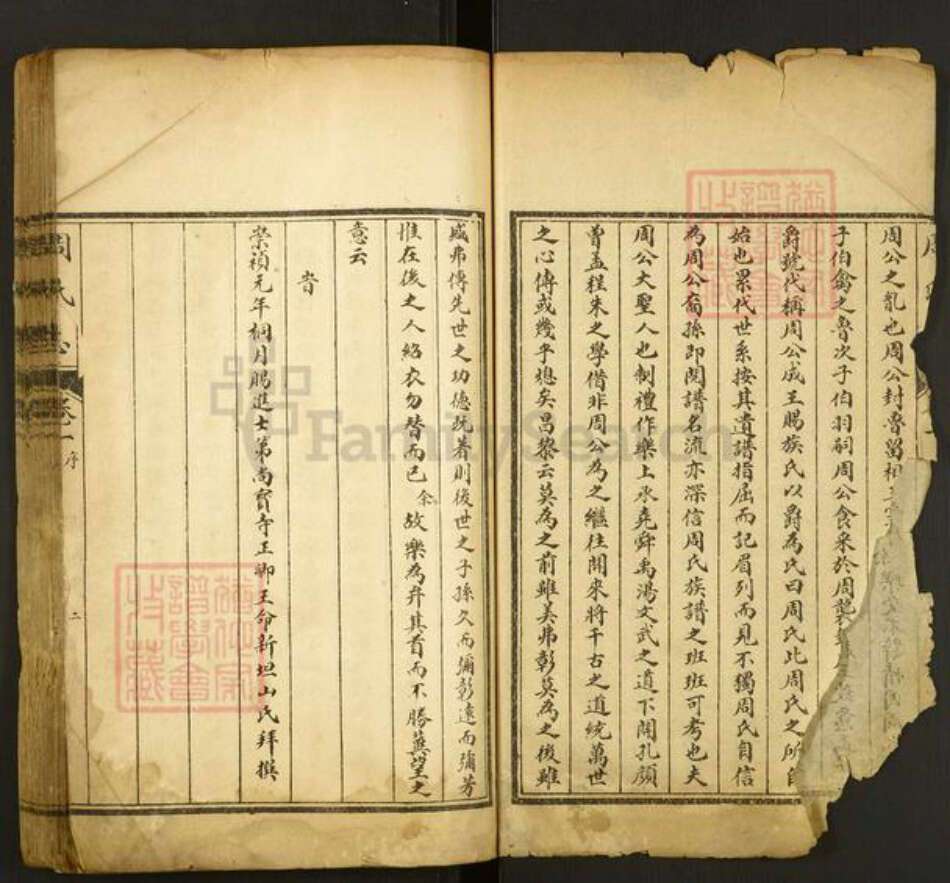 周公之亂也周公封魯留相王室
子伯禽之魯次子伯羽嗣周公食采於周襲
爵號代稱周公成王賜族氏以爵為氏曰周氏此周氏之所自
始也累代世系按其遺譜指屈而記眉列而見不獨周氏自信
為周公裔孫即閱譜名流亦深信周氏族譜之班班可考也夫
周公大聖人也制禮作樂上承堯舜禹湯文武之道下開孔顏
曾孟程朱之學借非周公為之繼往開來將千古之道統萬世
之心傳或幾乎熄矣昌黎云莫為之前雖美弗彰莫為之後雖
盛弗傳先世之功德既著則後世之子孫久而彌彰遠而彌芳
惟在後之人紹衣勿替而已余故樂為弁其首而不勝冀望之
意云
旹
崇禎元年桐月賜進士第尚寶寺正卿王命新坦山氏拜撰
周氏志
卷一
序
二
FamilySearch